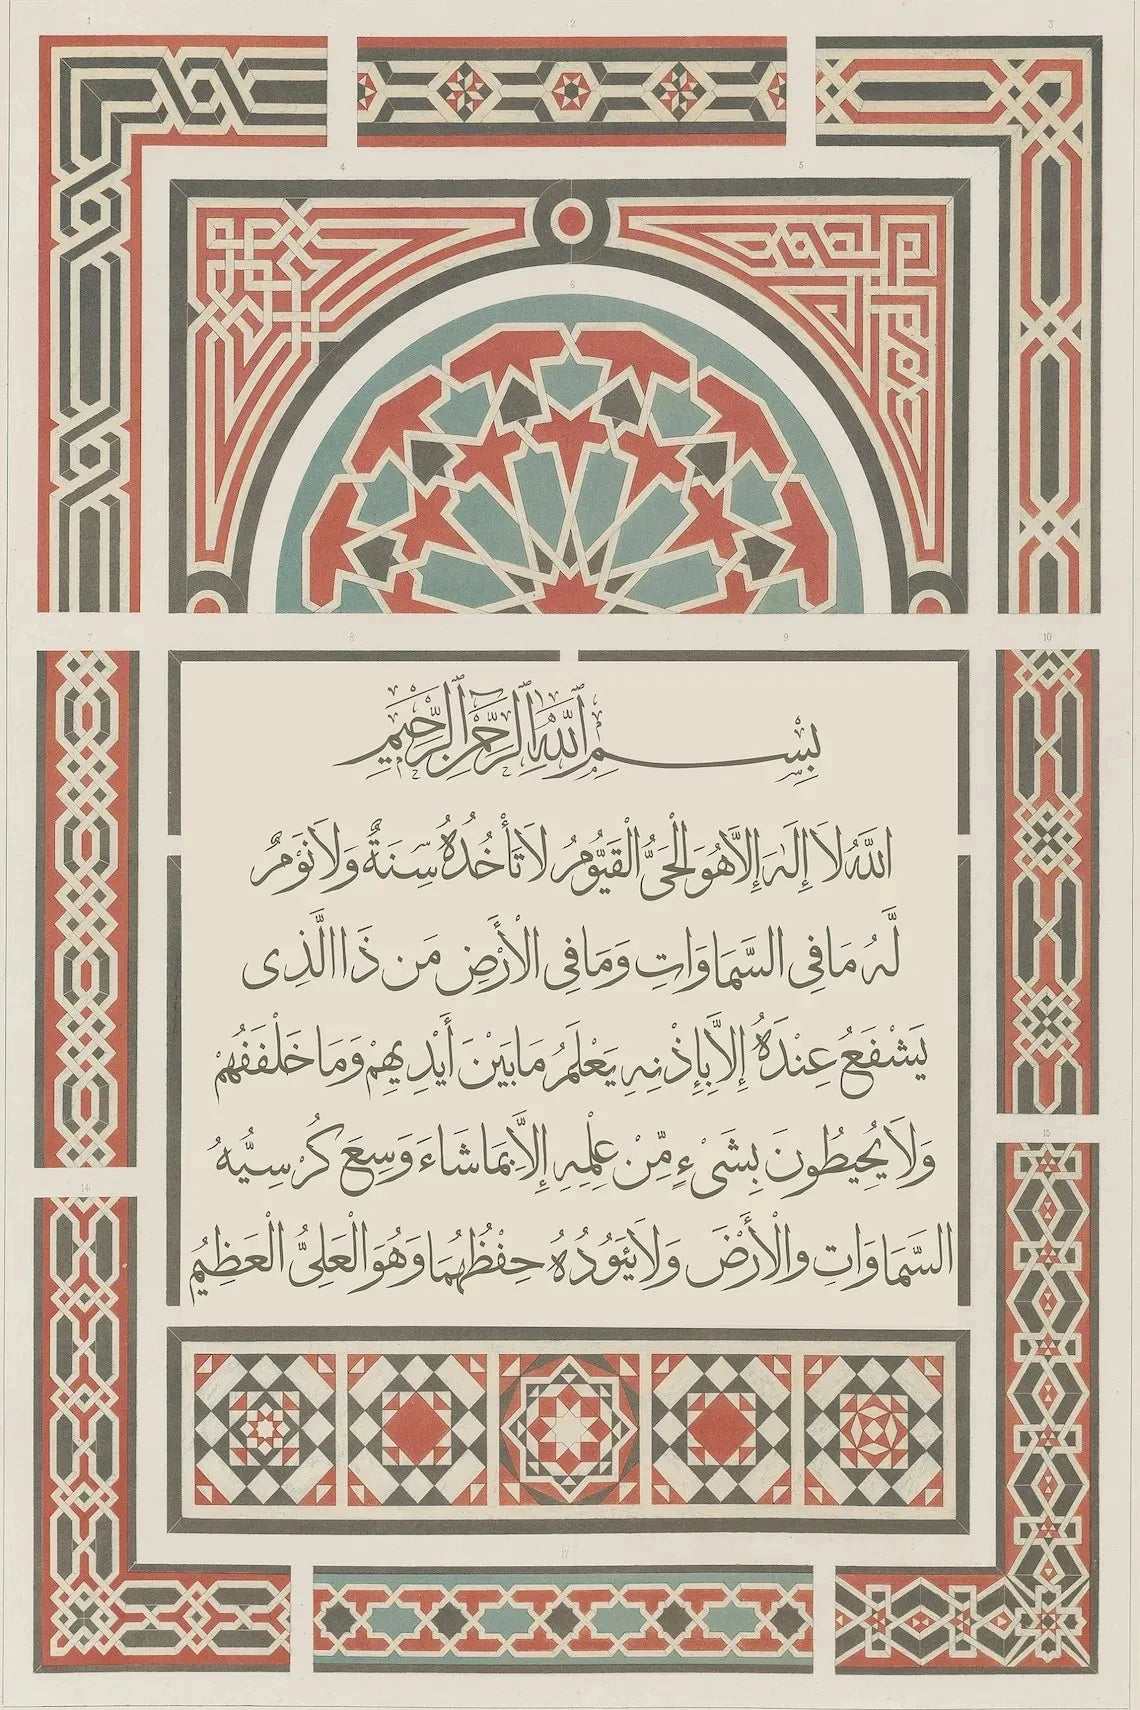 1 2 3
4 5
6
7 8 9 10
بِسْمِ اللَّهِ الرَّحْمَٰنِ الرَّحِيمِ
اللَّهُ لَا إِلَٰهَ إِلَّا هُوَ الْحَيُّ الْقَيُّومُ لَا تَأْخُذُهُ سِنَةٌ وَلَا نَوْمٌ
لَّهُ مَا فِي السَّمَاوَاتِ وَمَا فِي الْأَرْضِ مَن ذَا الَّذِى
يَشْفَعُ عِنْدَهُ إِلَّا بِإِذْنِهِ يَعْلَمُ مَا بَيْنَ أَيْدِيهِمْ وَمَا خَلْفَفَهُمْ
وَلَا يُحِيطُونَ بِشَىْءٍ مِّنْ عِلْمِهِ إِلَّا بِمَا شَاءَ وَسِعَ كُرْسِيُّهُ
السَّمَاوَاتِ والْأَرْضَ وَلَا يَئُودُهُ حِفْظُهُمَا وَهُوَ الْعَلِيُّ الْعَظِيمُ
14
17